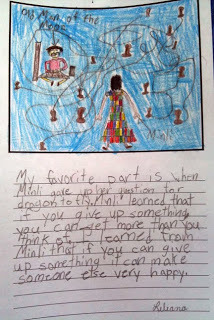 Old Man of the
Moon
Minli
My favorite part is when
Minli gave up her question for
dragon to fly. Minli learned that
if you give up something
you can get more than you
think of. I learned from
Minli that if you can give
up something it can make
someone else very happy.
Reliana